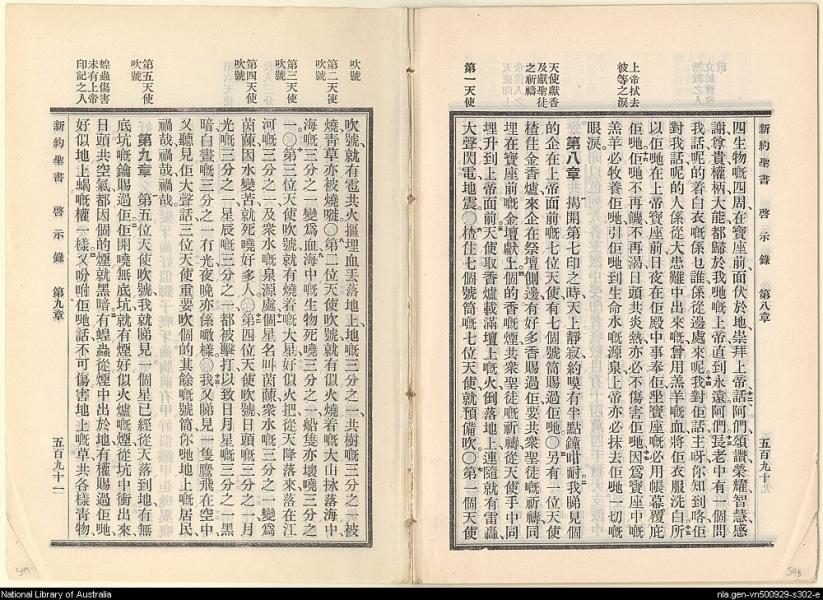 新約聖書 啓示錄 第八章 五百九十
四生物嘅四周在寶座前面伏於地崇拜上帝話阿們頌讚榮耀智慧感
謝尊貴權柄大能都歸於我哋嘅上帝直到永遠阿們長老中有一個問
我話呢的着白衣嘅係乜誰係從邊處來呢我對佢話主呀你知到咯佢
對我話呢的人係從大患難中出來嘅曾用羔羊嘅血將佢衣服洗白所
以佢哋在上帝寶座前日夜在佢殿中事奉佢坐寶座嘅必用帳幕覆庇
佢哋佢哋不再饑不再渴日頭共炎熱亦必不傷害佢哋因爲寶座中嘅
羔羊必牧養佢哋引佢哋到生命水嘅源泉上帝亦必抹去佢哋一切嘅
眼淚
第八章 揭開第七印之時天上靜寂約嘆有半點鐘咁耐我睇見個
的企在上帝面前嘅七位天使有七個號筒賜過佢哋〇另有一位天使
揸住金香爐來企在祭壇側邊有好多香賜過佢要共衆聖徒嘅祈禱同
埋在寶座前嘅金壇獻上個的香嘅煙共衆聖徒嘅祈禱從天使手中同
埋升到上帝面前天使取香爐載滿壇上嘅火倒落地上連隨就有雷轟
大聲閃電地震〇揸住七個號筒嘅七位天使就預備吹〇第一個天使
上帝拭去
彼等之淚
天使獻香
及獻聖徒
之祈禱
第一天使
吹號
第二天使
吹號
第三天使
吹號
第四天使
吹號
第五天使
吹號
蝗蟲傷害
未有上帝
印記之人
吹號就有雹共火摳埋血丟落地上地嘅三分之一共樹嘅三分之一被
燒青草亦被燒嘵〇第二位天使吹號就有似火燒着嘅大山拋落海中
海嘅三分之一變爲血海中嘅生物死嘵三分之一船隻亦壞嘵三分之
一〇第三位天使吹號就有燒着嘅大星好似火把從天降落來落在江
河嘅三分之一及衆水嘅泉源處個星名叫茵蔯衆水嘅三分之一變爲
茵蔯因水變苦就死嘵好多人〇第四位天使吹號日頭嘅三分之一月
光嘅三分之一星辰嘅三分之一都被擊打以致日月星嘅三分之一黑
暗白晝嘅三分之一冇光夜晚亦係噉樣〇我又睇見一隻鷹飛在空中
又聽見佢大聲話三位天使重要吹個的其餘嘅號筒你哋地上嘅居民
禍哉禍哉禍哉
第九章 第五位天使吹號我就睇見一個星已經從天落到地有無
底坑嘅鑰賜過佢佢開嘵無底坑就有煙好似火爐嘅煙從坑中衝出來
日頭共空氣都因個的煙就黑暗有蝗蟲從煙中出於地有權賜過佢哋
好似地上蝎嘅權一樣又吩咐佢哋話不可傷害地上嘅草共各樣青物
新約聖書 啓示錄 第九章 五百九十一
National Library of Australia
nla.gen-vn500929-s302-e